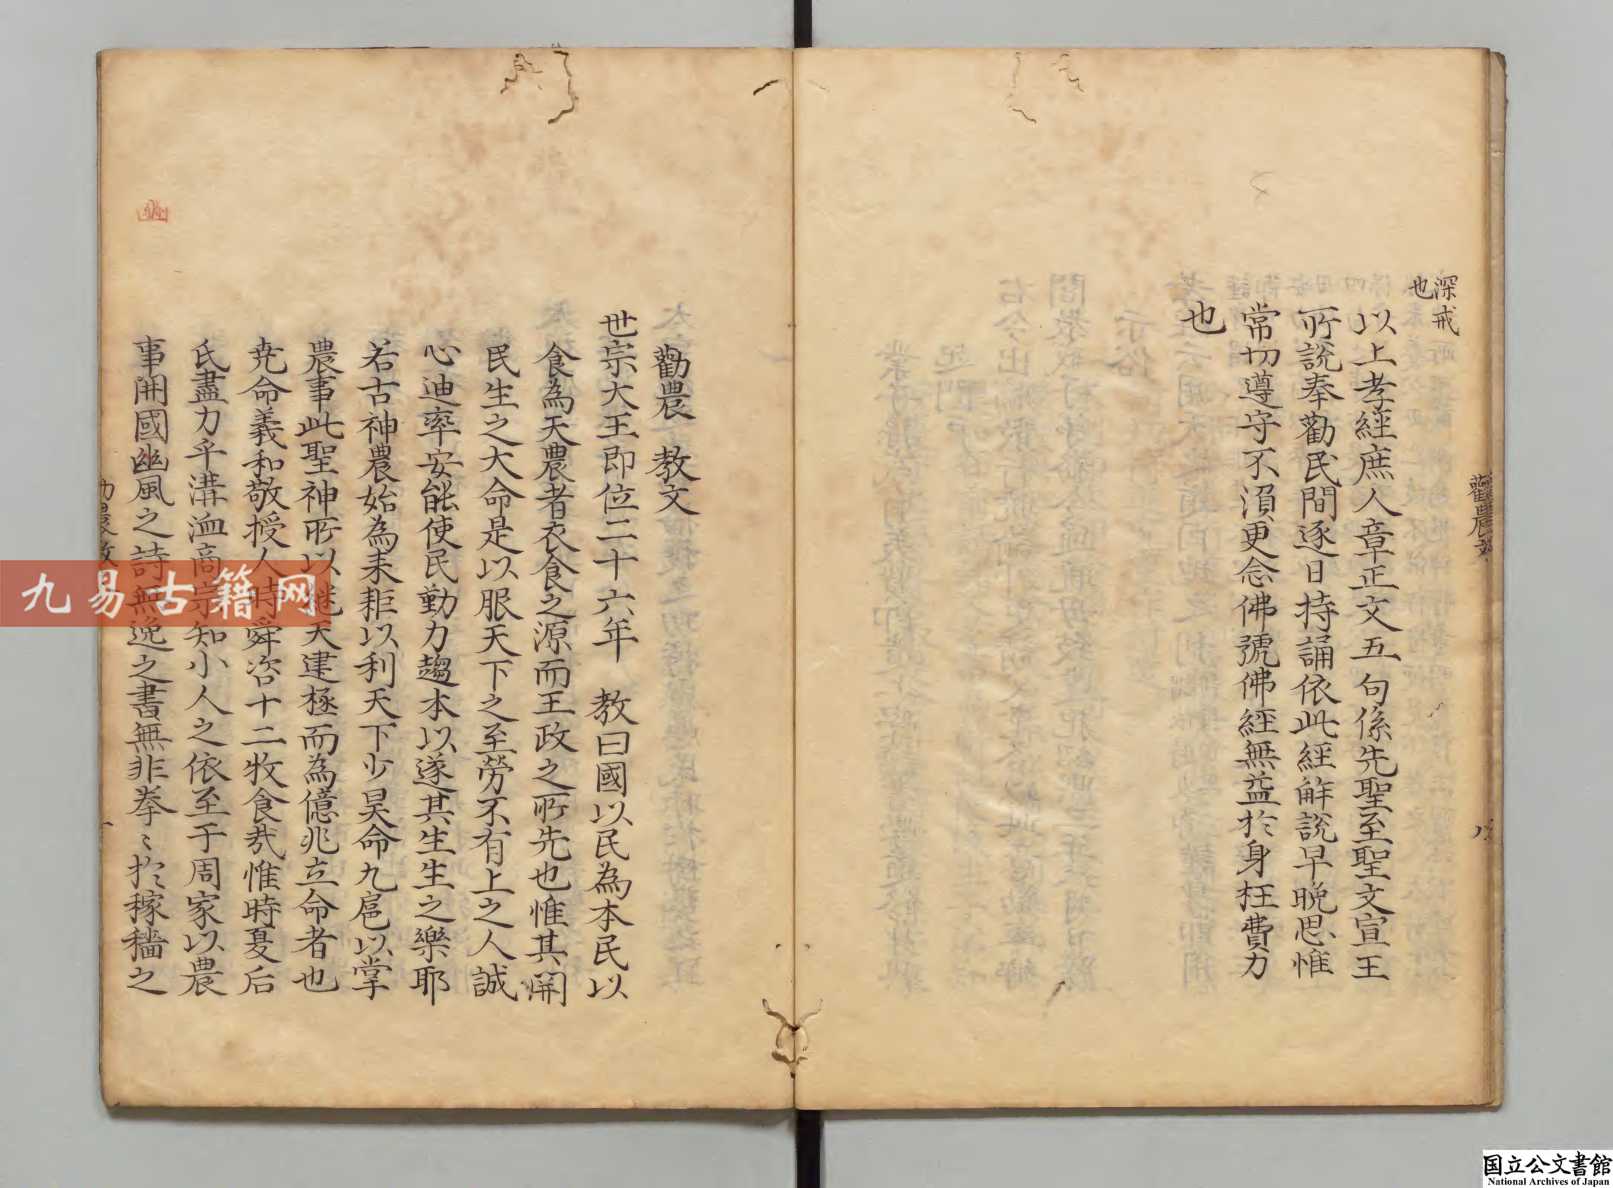 深戒
也
以上孝經庶人章正文五句係先聖至聖文宣王
所說奉勸民間逐日持誦依此經解說早晚思惟
常切遵守不湏更念佛號佛經無益於身枉費力
也
勸農
勸農 教文
世宗大王即位二十六年 教曰國以民為本民以
食為天農者衣食之源而王政之所先也惟其關
民生之大命是以服天下之至勞不有上之人誠
心迪率安能使民勤力趨本以遂其生生之樂耶
若古神農始為耒耟以利天下少昊命九扈以掌
農事此聖神所以継天建極而為億兆立命者也
尭命義和敬授人時舜咨十二牧食㦲惟時夏后
氏盡力乎溝洫高宗知小人之依至于周家以農
事開國豳風之詩無逸之書無非拳〻於稼穡之
九易古籍网
国立公文書館
National Archives of Japan